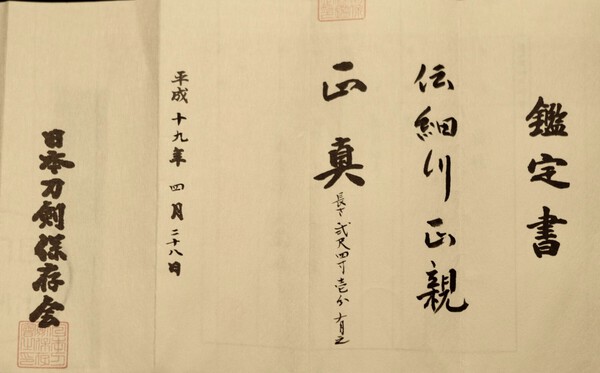 鑑定書
伝細川正親
正真
長サ弐尺四寸壱分有之
平成十九年四月二十八日
日本刀剣保存会